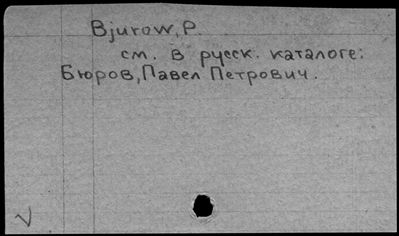 Bjurow, P.
см. в русск. каталоге:
Бюров, Павел Петрович.